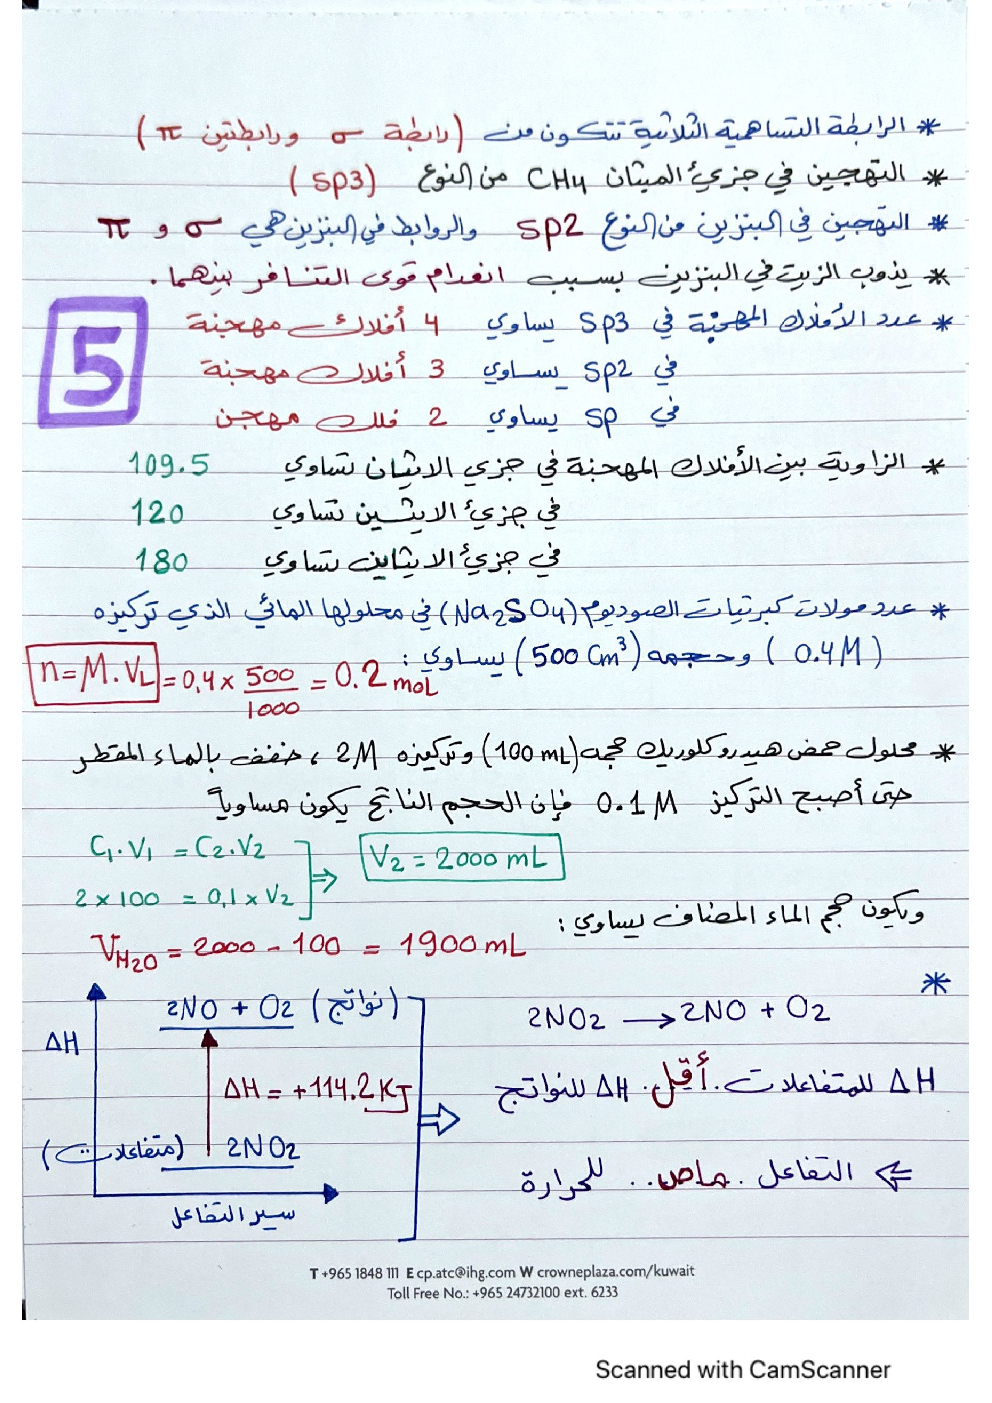 * الرابطة التساهمية الثلاثية تتكون من (رابطة σ ورابطتين π)
* التهجين في جزيئ الميثان CH4 من النوع (sp3)
* التهجين في البنزين من النوع sp2 والروابط في البنزين هي σ و π
* يذوب الزيت في البنزين بسبب انعدام قوى التنافر بينهما.
* عدد الأفلاك المهجنة في sp3 يساوي 4 أفلاك مهجنة
في sp2 يساوي 3 أفلاك مهجنة
في sp يساوي 2 فلك مهجن
5
* الزاوية بين الأفلاك المهجنة في جزي الايثان تساوي 109.5
في جزيئ الايثين تساوي 120
في جزيئ الايثاين تساوي 180
* عدد مولات كبرتيات الصوديوم (Na2SO4) في محلولها المائي الذي تركيزه
(0.4M) وحجمه (500 Cm³) يساوي :
n=M.VL = 0,4 x 500/1000 = 0.2 moL
* محلول حمض هيدروكلوريك حجمه (100 mL) وتركيزه 2M ، خفف بالماء المقطر
حتى أصبح التركيز 0.1 M فإن الحجم الناتج يكون مساوياً
C1.V1 = C2.V2
2 x 100 = 0,1 x V2 ⇒ V2 = 2000 mL
ويكون حجم الماء المضاف يساوي :
VH2O = 2000 - 100 = 1900 mL
* 2NO2 → 2NO + O2
ΔH للمتفاعلات .أقل. ΔH للنواتج
⇐ التفاعل .ماص.. للحرارة
2NO + O2 (نواتج)
ΔH
ΔH = +114.2 KJ
2NO2 (متفاعلات)
سير التفاعل
T +965 1848 111 E cp.atc@ihg.com W crowneplaza.com/kuwait
Toll Free No.: +965 24732100 ext. 6233
Scanned with CamScanner